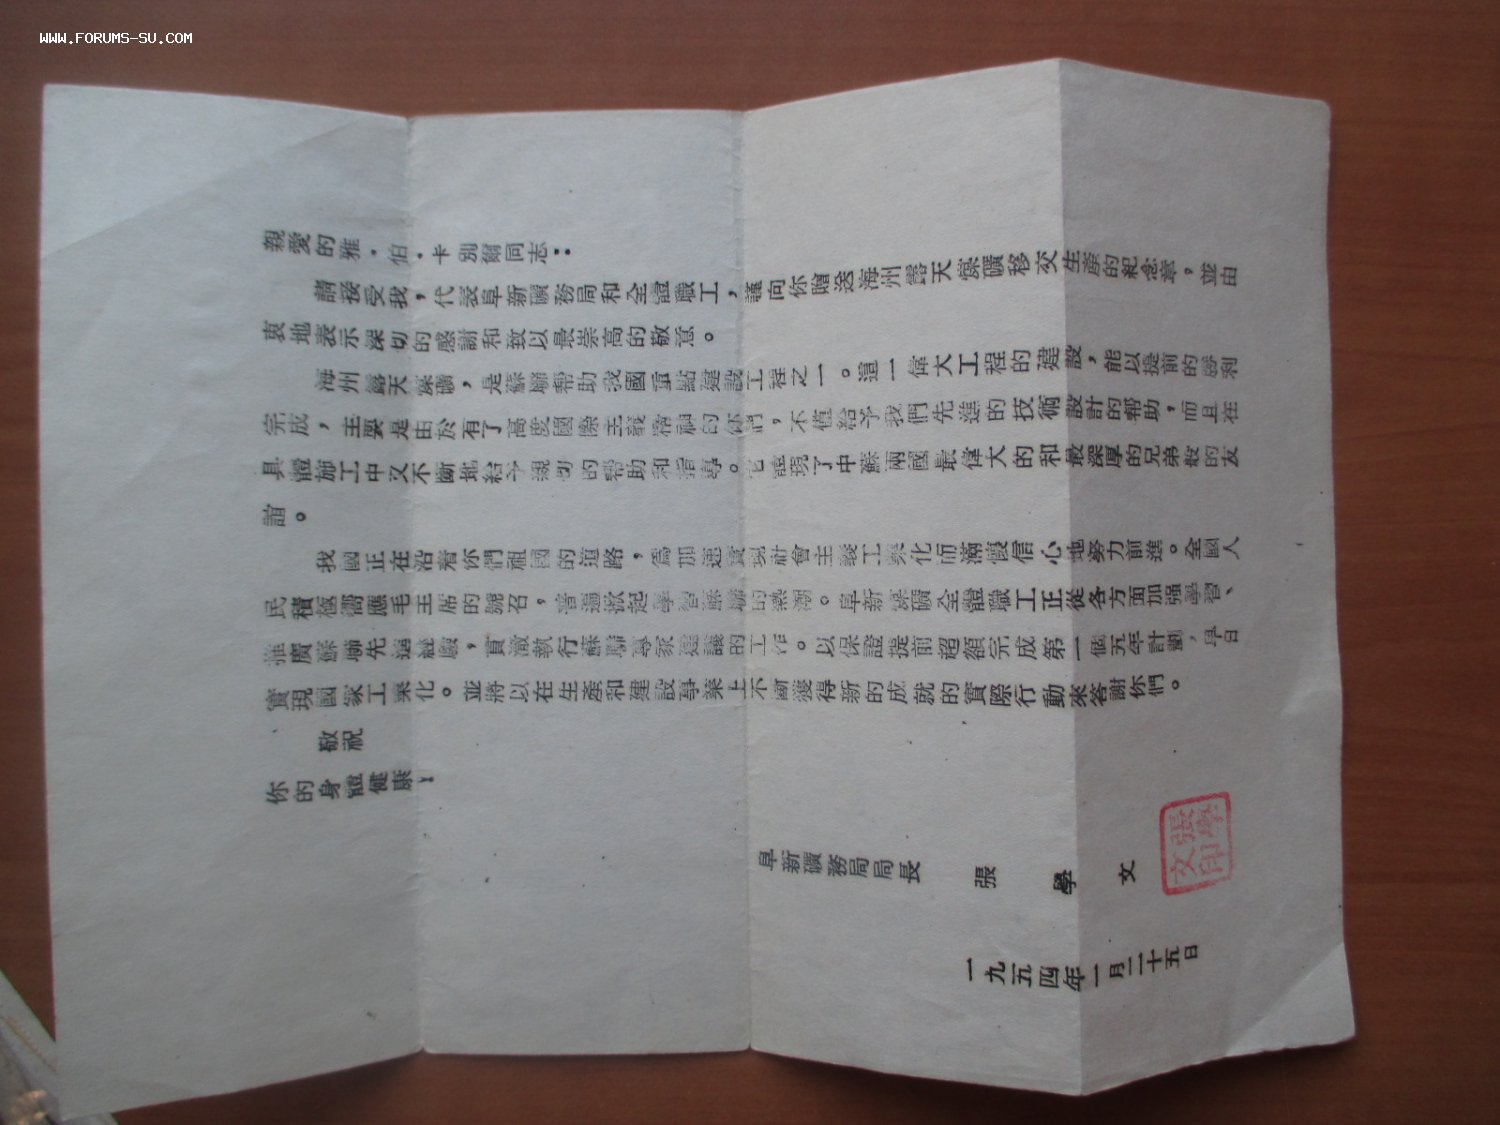 WWW.FORUMS-SU.COM
親愛的雅·伯·卡別爾同志：
請接受我，代表阜新礦務局和全體職工，謹向你贈送海州露天煤礦移交生產的紀念章，並由
衷地表示深切的感謝和致以最崇高的敬意。
海州露天煤礦，是蘇聯幫助我國重點建設工程之一。這一偉大工程的建設，能以提前的勝利
完成，主要是由於有了高度國際主義精神的你們，不僅給予我們先進的技術設計的幫助，而且在
具體施工中又不斷地給予親切的幫助和指導。它體現了中蘇兩國最偉大的和最深厚的兄弟般的友
誼。
我國正在沿着你們祖國的道路，為加速實現社會主義工業化而滿懷信心地努力前進。全國人
民積極嚮應毛主席的號召，普遍掀起學習蘇聯的熱潮。阜新煤礦全體職工正從各方面加強學習、
推廣蘇聯先進經驗，貫澈執行蘇聯專家建議的工作。以保證提前超額完成第一個五年計劃，早日
實現國家工業化。並將以在生產和建設事業上不斷獲得新的成就的實際行動來答謝你們。
敬祝
你的身體健康！
阜新礦務局局長 張學文
張學文印
一九五四年一月二十五日